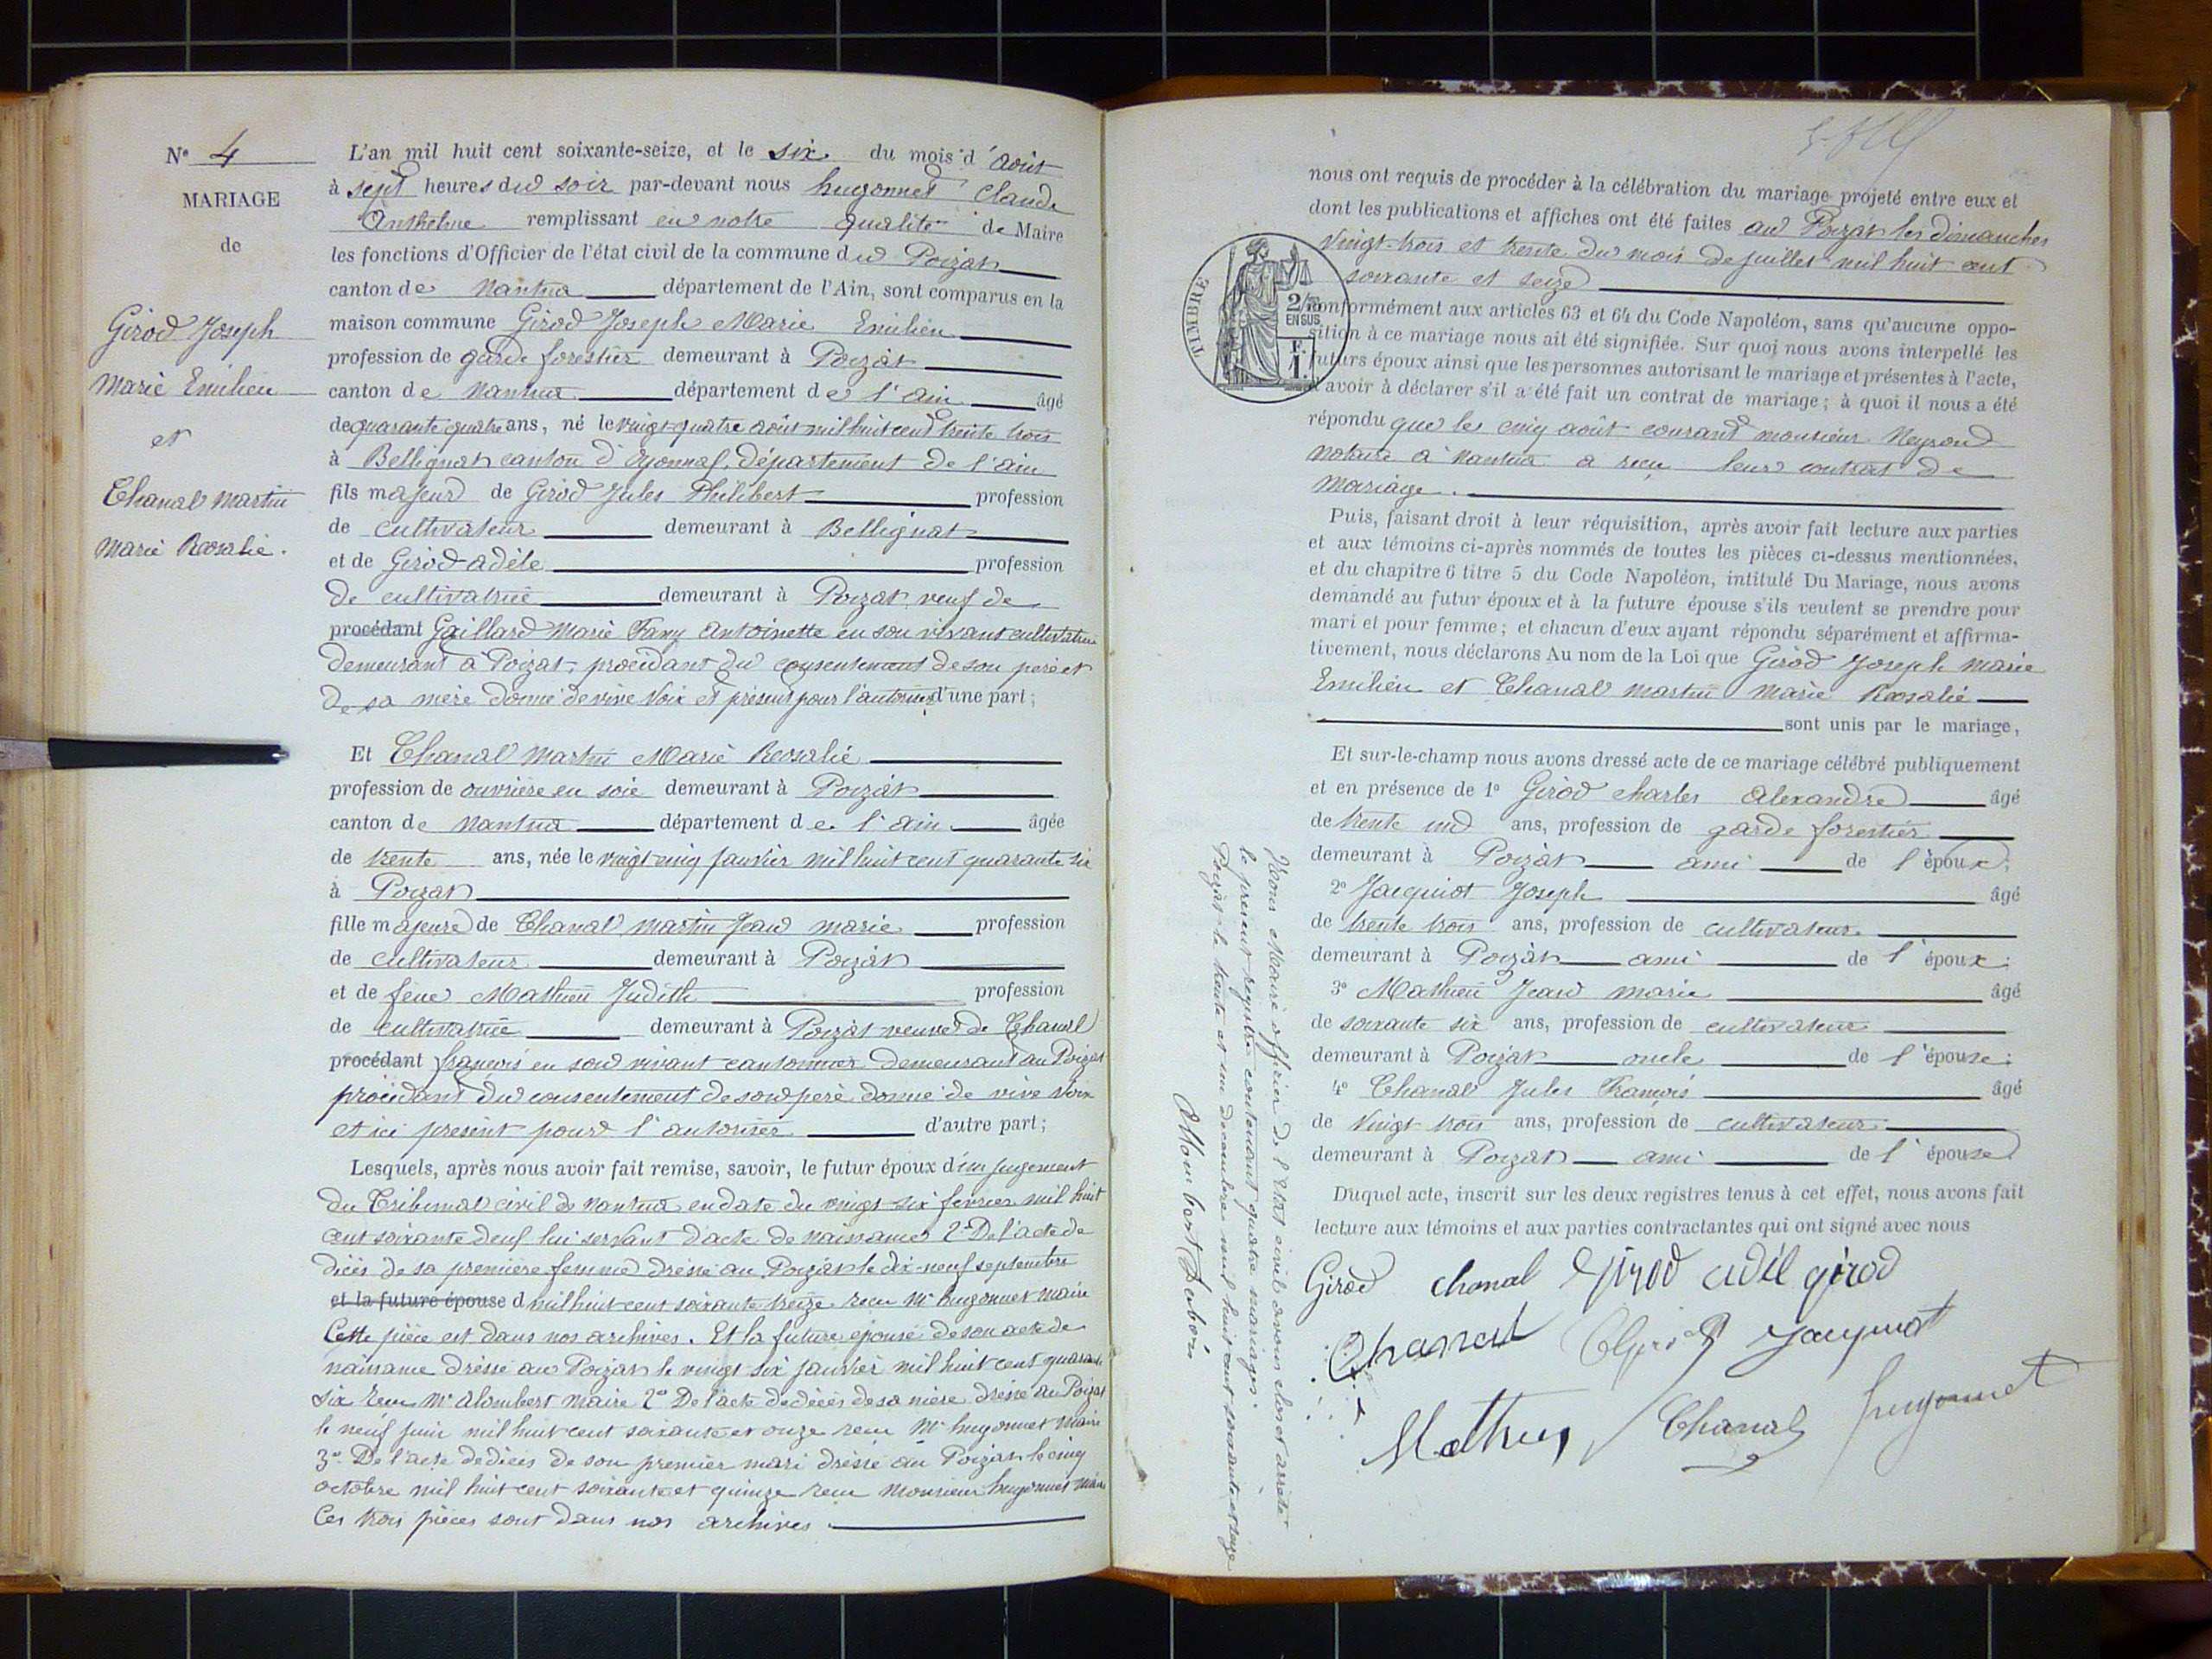 N° 4
MARIAGE
de
Girod Joseph
Marie Emilien
et
Chanal Martin
Marie Rosalie.
L'an mil huit cent soixante-seize, et le six du mois d'août
à sept heures du soir par-devant nous hugonnet Claude
Anthelme remplissant en notre qualité de Maire
les fonctions d'Officier de l'état civil de la commune du Poizat
canton de Nantua département de l'Ain, sont comparus en la
maison commune Girod Joseph Marie Emilien
profession de garde forestier demeurant à Poizat
canton de Nantua département de l'ain âgé
de quarante quatre ans, né le vingt-quatre août mil huit cent trente trois
à Bellignat canton d'Oyonnaf, département de l'ain
fils majeur de Girod Jules Philibert profession
de cultivateur demeurant à Bellignat
et de Girod adèle profession
de cultivatrice demeurant à Poizat, veuf de
procédant Gaillard Marie Fany Antoinette en son vivant cultivatrice
demeurant à Poizat, procédant du consentement de son père et
de sa mère donné de vive voix et présent pour l'autoriser d'une part;
Et Chanal Martin Marie Rosalie
profession de ouvrière en soie demeurant à Poizat
canton de Nantua département de l'ain âgée
de trente ans, née le vingt cinq janvier mil huit cent quarante six
à Poizat
fille majeure de Chanal Martin Jean marie profession
de cultivateur demeurant à Poizat
et de feue Mathieu Judith profession
de cultivatrice demeurant à Poizat veuve de Chanal
procédant françois en son vivant cantonnier demeurant au Poizat
procédant du consentement de son père donné de vive voix
et ici présent pour l'autoriser d'autre part;
Lesquels, après nous avoir fait remise, savoir, le futur époux d'un jugement
du Tribunal civil de Nantua en date du vingt-six fevrier mil huit
cent soixante deuf lui servant d'acte de naissance 2° De l'acte de
décès de sa première femme dressé au Poizat le dix-neuf septembre
et la future épouse d mil huit cent soixante treize recu Mr hugonnet maire
Cette pièce est dans nos archives. Et la future épouse de son acte de
naissance dressé au Poizat le vingt six janvier mil huit cent quarante
six recu Mr alombert maire 2° De l'acte de décès de sa mère dressé au Poizat
le neuf juin mil huit cent soixante et onze recu Mr hugonnet maire
3° De l'acte de décès de son premier mari dressé au Poizat le cinq
octobre mil huit cent soixante et quinze recu Monsieur hugonnet maire
Ces trois pièces sont dans nos archives.
nous ont requis de procéder à la célébration du mariage projeté entre eux et
dont les publications et affiches ont été faites au Poizat les dimanches
vingt-trois et trente du mois de juillet mil huit cent
soixante et seize
TIMBRE
2/10
EN SUS
F.
1.
conformément aux articles 63 et 64 du Code Napoléon, sans qu'aucune oppo-
sition à ce mariage nous ait été signifiée. Sur quoi nous avons interpellé les
futurs époux ainsi que les personnes autorisant le mariage et présentes à l'acte,
d'avoir à déclarer s'il a été fait un contrat de mariage; à quoi il nous a été
répondu que le cinq août courant monsieur Neyroud
notaire à Nantua a recu leur contrat de
mariage.
Puis, faisant droit à leur réquisition, après avoir fait lecture aux parties
et aux témoins ci-après nommés de toutes les pièces ci-dessus mentionnées,
et du chapitre 6 titre 5 du Code Napoléon, intitulé Du Mariage, nous avons
demandé au futur époux et à la future épouse s'ils veulent se prendre pour
mari et pour femme; et chacun d'eux ayant répondu séparément et affirma-
tivement, nous déclarons Au nom de la Loi que Girod Joseph marie
Emilien et Chanal martin marie Rosalie
sont unis par le mariage,
Et sur-le-champ nous avons dressé acte de ce mariage célébré publiquement
et en présence de 1° Girod charles Alexandre âgé
de trente un ans, profession de garde forestier
demeurant à Poizat ami de l'époux;
2° Jacquiot Joseph âgé
de trente trois ans, profession de cultivateur
demeurant à Poizat ami de l'époux;
3° Mathieu Jean marie âgé
de soixante six ans, profession de cultivateur
demeurant à Poizat oncle de l'épouse;
4° Chanal Jules François âgé
de vingt trois ans, profession de cultivateur
demeurant à Poizat ami de l'épouse
Duquel acte, inscrit sur les deux registres tenus à cet effet, nous avons fait
lecture aux témoins et aux parties contractantes qui ont signé avec nous
Girod chanal Girod adél girod
Chanal Jacquiot
Mathieu Chanal hugonnet
Nous Maire officier de l'Etat civil avons clos et arrêté
le présent registre contenant quatre mariages
Poizat le trente et un décembre mil huit cent soixante et seize